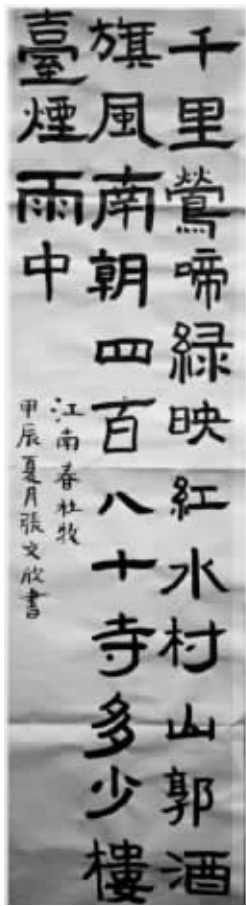 千里鶯啼緑映紅水村山郭酒
旗風南朝四百八十寺多少樓
臺煙雨中
江南春杜牧
甲辰夏月張文欣書